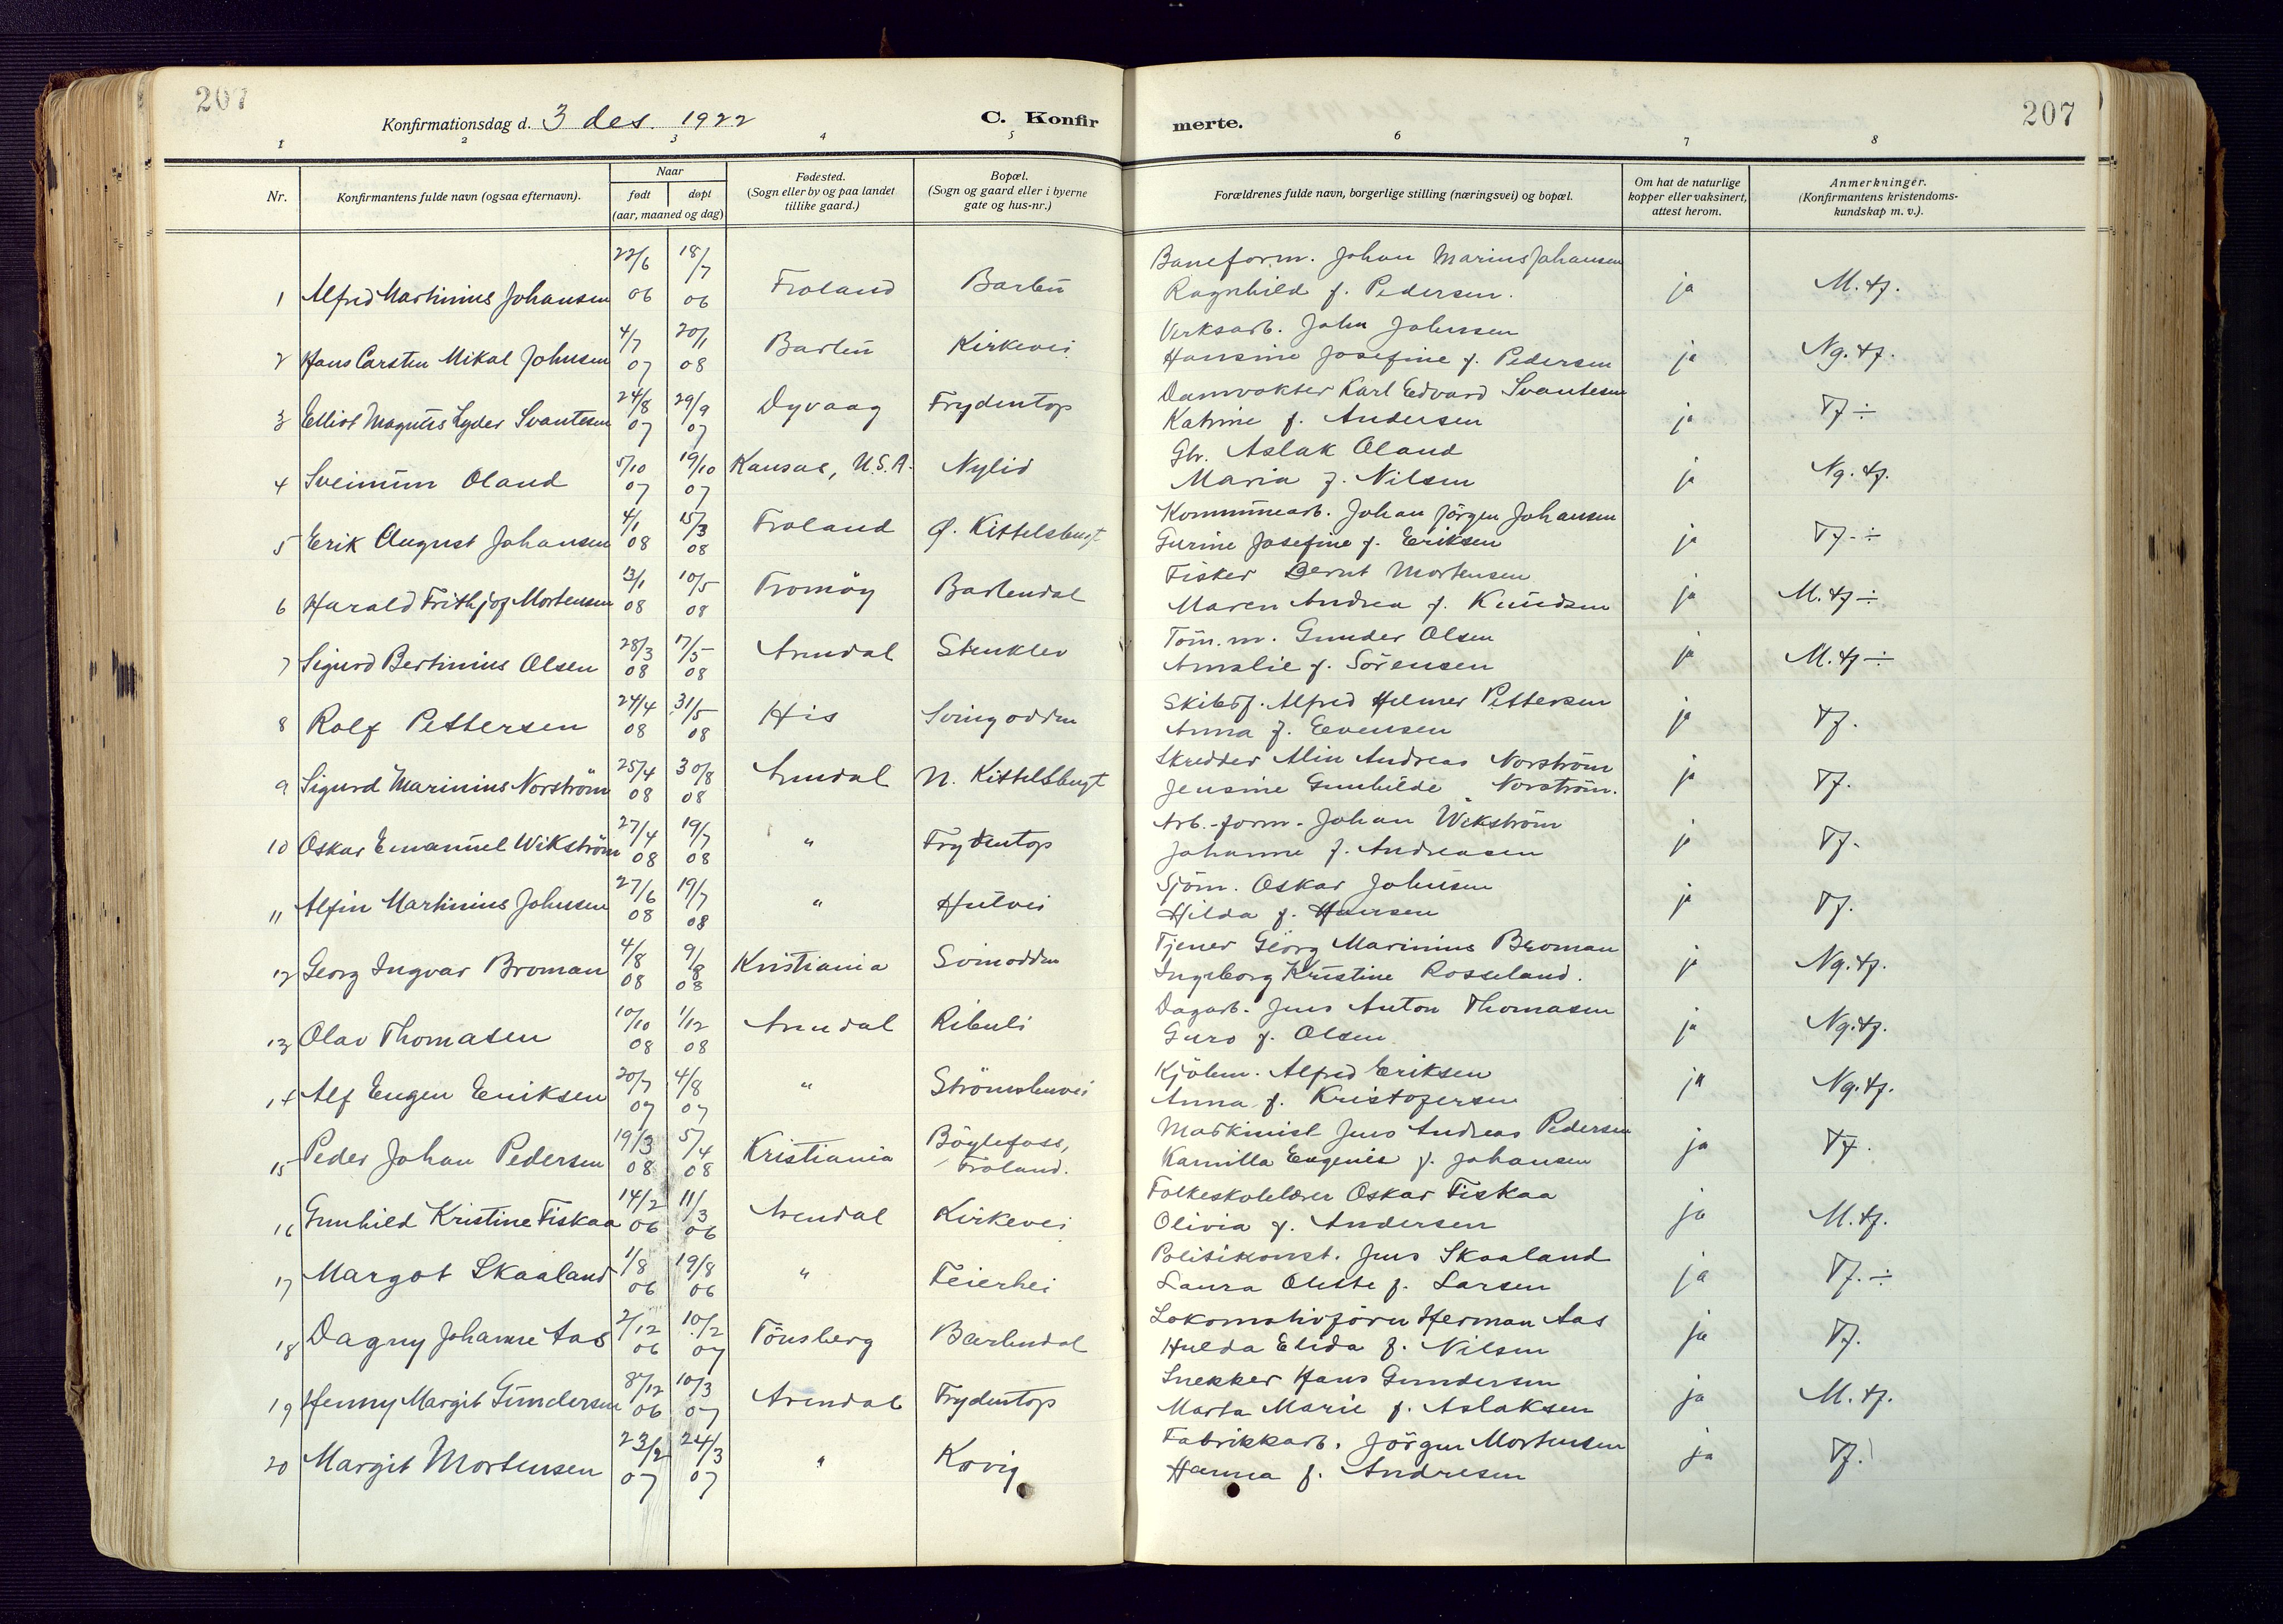 207
207
Konfirmationsdag d. 3 des. 1922
C. Konfir
merte.
1 2 3 4 5 6 7 8
Nr.
Konfirmantens fulde navn (ogsaa efternavn).
Naar
født døpt
(aar, maaned og dag)
Fødested.
(Sogn eller by og paa landet
tillike gaard.)
Bopæl.
(Sogn og gaard eller i byerne
gate og hus-nr.)
Forældrenes fulde navn, borgerlige stilling (næringsvei) og bopæl.
Om hat de naturlige
kopper eller vaksinert,
attest herom.
Anmerkninger.
(Konfirmantens kristendoms-
kundskap m. v.).
22/6 18/7 Baneform. Johan Marius Johansen
1 Alfred Martinius Johansen 06 06 Froland Barbu Ragnhild f. Pedersen. ja M. tf.
4/7 20/1 Verksarb. John Johnsen
2 Hans Carsten Mikal Johnsen 07 08 Barbu Kirkevei Hansine Josefine f. Pedersen ja Ng. tf.
24/8 29/9 Damvokter Karl Edvard Svantesen
3 Elliot Magnus Lyder Svantesen 07 07 Dyvaag Frydentop Katrine f. Andersen ja Tf ÷
5/10 19/10 Gbr. Aslak Oland
4 Sveinum Oland 07 07 Kansas, U.S.A. Nylid Maria f. Nilsen ja Ng. tf.
4/1 15/3 Kommunearb. Johan Jörgen Johansen
5 Erik August Johansen 08 08 Froland Ø. Kittelsbugt Gurine Josefine f. Eriksen ja Tf. ÷
13/1 10/5 Fisker Bernt Mortensen
6 Harald Frithjof Mortensen 08 08 Tromöy Barbudal Maren Andrea f. Knudsen ja M. tf ÷
28/3 17/5 Töm.m. Gunder Olsen
7 Sigurd Bertinius Olsen 08 08 Arendal Stenklev Amalie f. Sörensen ja M. tf ÷
24/4 31/5 Skibsf. Alfred Helmer Pettersen
8 Rolf Pettersen 08 08 His Svingodden Anna f. Evensen ja Tf.
25/4 30/8 Skredder Alin Andreas Norström
9 Sigurd Marinius Norström 08 08 Arendal N. Kittelsbugt Jensine Gunhilde Norström. ja Tf.
27/4 19/7 Arb.-form. Johan Wikström
10 Oskar Emanuel Wikström 08 08 " Frydentop Johanne f. Andreasen ja Tf.
27/6 19/7 Sjöm. Oskar Johnsen
11 Alfin Martinius Johnsen 08 08 " Hutvei Hilda f. Hansen ja Tf.
4/8 9/8 Tjener Georg Marinius Broman
12 Georg Ingvar Broman 08 08 Kristiania Svinodden Ingeborg Kristine Rosseland. ja Ng. tf.
10/10 1/12 Dagarb. Jens Anton Thomasen
13 Olav Thomasen 08 08 Arendal Ribuli Guro f. Olsen ja Ng. tf.
20/7 4/8 Kjöbm. Alfred Eriksen
14 Alf Eugen Eriksen 07 07 " Strömsbuvei Anna f. Kristofersen ja Ng. tf.
19/3 5/4 Böylefoss, Maskinist Jens Andreas Pedersen
15 Peder Johan Pedersen 08 08 Kristiania Froland. Kamilla Eugenie f. Johansen ja Tf.
14/2 11/3 Folkeskolelærer Oskar Fiskaa
16 Gunhild Kristine Fiskaa 06 06 Arendal Kirkevei Olivia f. Andersen ja M. tf.
1/8 19/8 Politikonst. Jens Skaaland
17 Margot Skaaland 06 06 " Feierhei Laura Oleste f. Larsen ja Tf. ÷
2/12 10/2 Lokomotivförer Herman Aas
18 Dagny Johanne Aas 06 07 Tönsberg Barbudal Hulda Elida f. Nilsen ja Tf.
8/12 10/3 Snekker Hans Gundersen
19 Henny Margit Gundersen 06 07 Arendal Frydentop Marta Marie f. Aslaksen ja M. tf.
23/2 24/3 Fabrikkarb. Jörgen Mortensen
20 Margit Mortensen 07 07 " Kovig Hanna f. Andresen ja Tf.